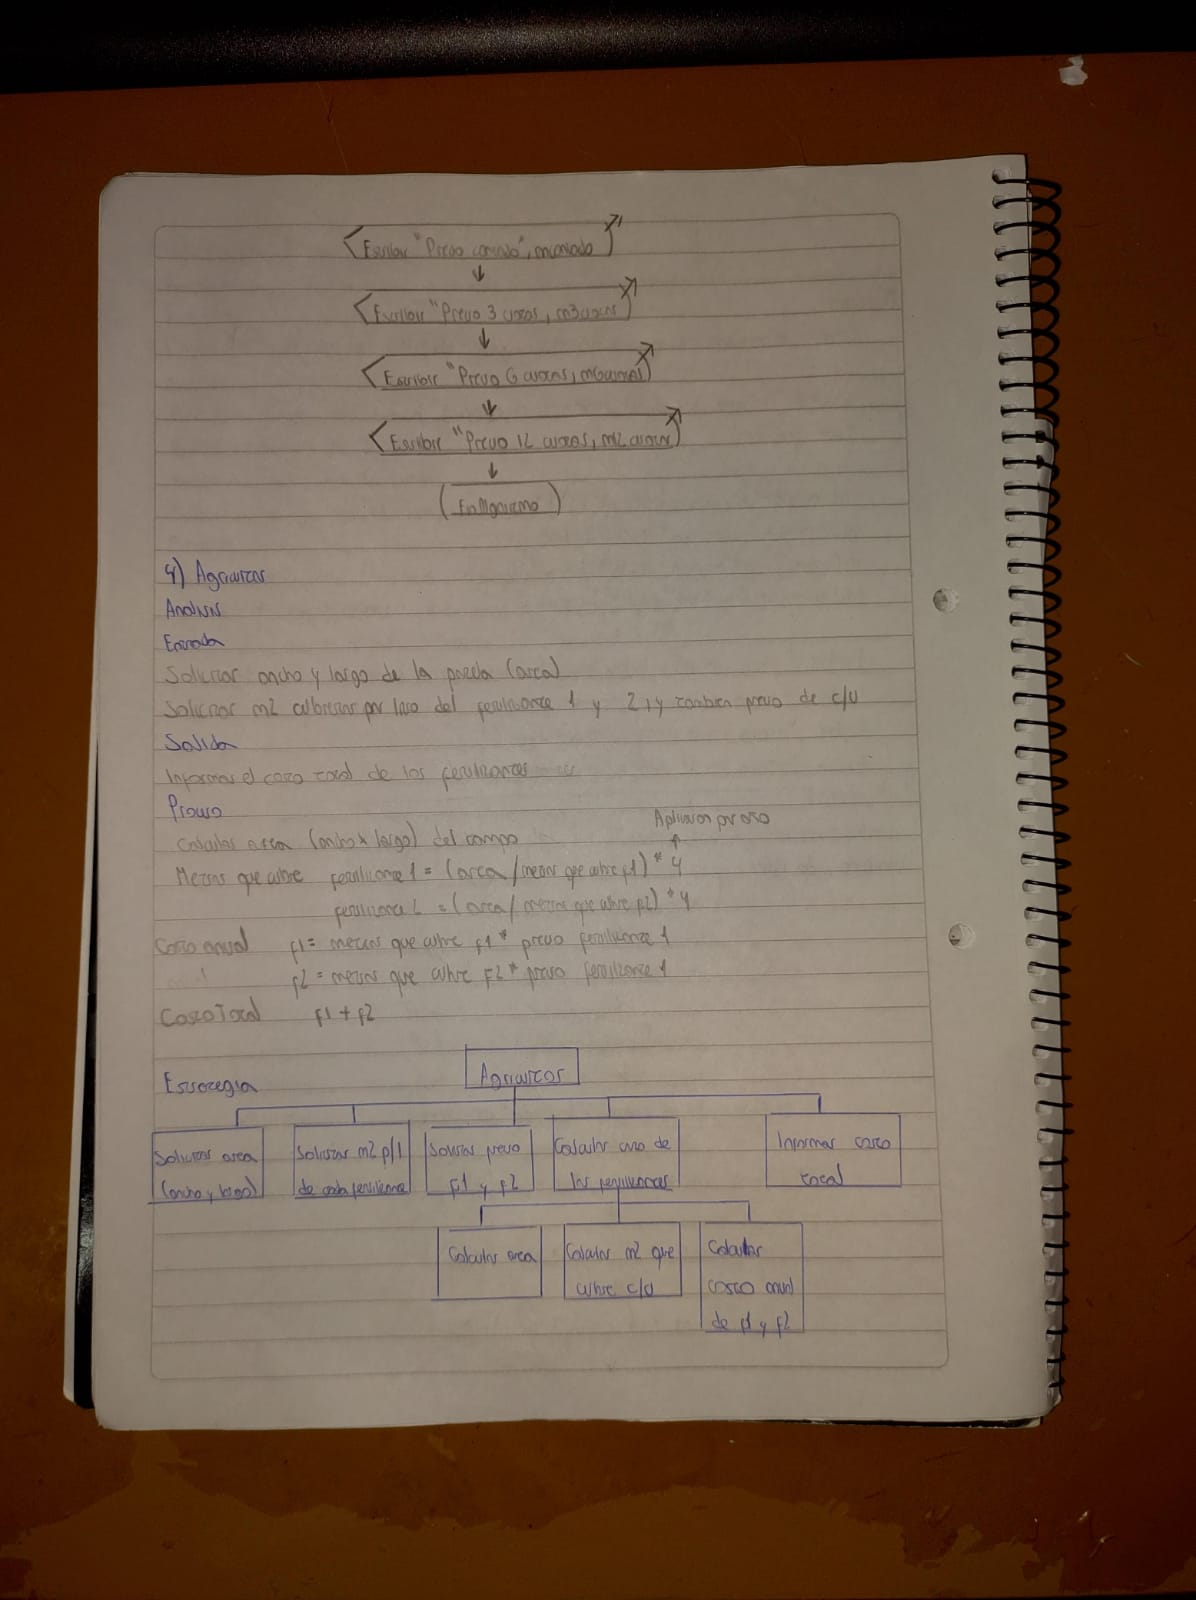 Escribir "Precio contado", mcontado
Escribir "Precio 3 cuotas, m3cuotas
Escribir "Precio 6 cuotas, m6cuotas
Escribir "Precio 12 cuotas, m12 cuotas
FinAlgoritmo
4) Agricultor
Analisis
Entrada
Solicitar ancho y largo de la parcela (area)
Solicitar m2 cubiertos por litro del fertilizante 1 y 2, y tambien precio de c/u
Salida
Informar el costo total de los fertilizantes
Proceso
Aplicacion por año
Calcular area (ancho * largo) del campo
Metros que cubre fertilizante 1 = (area / metros que cubre f1) * 4
fertilizante 2 = (area / metros que cubre f2) * 4
Costo anual f1 = metros que cubre f1 * precio fertilizante 1
f2 = metros que cubre F2 * precio fertilizante 1
Costo Total f1 + f2
Estrategia
Agricultor
Solicitar area (ancho y largo)
Solicitar m2 p/l de cada fertilizante
Solicitar precio f1 y f2
Calcular costo de los fertilizantes
Informar costo total
Calcular area
Calcular m2 que cubre c/u
Calcular costo anual de f1 y f2